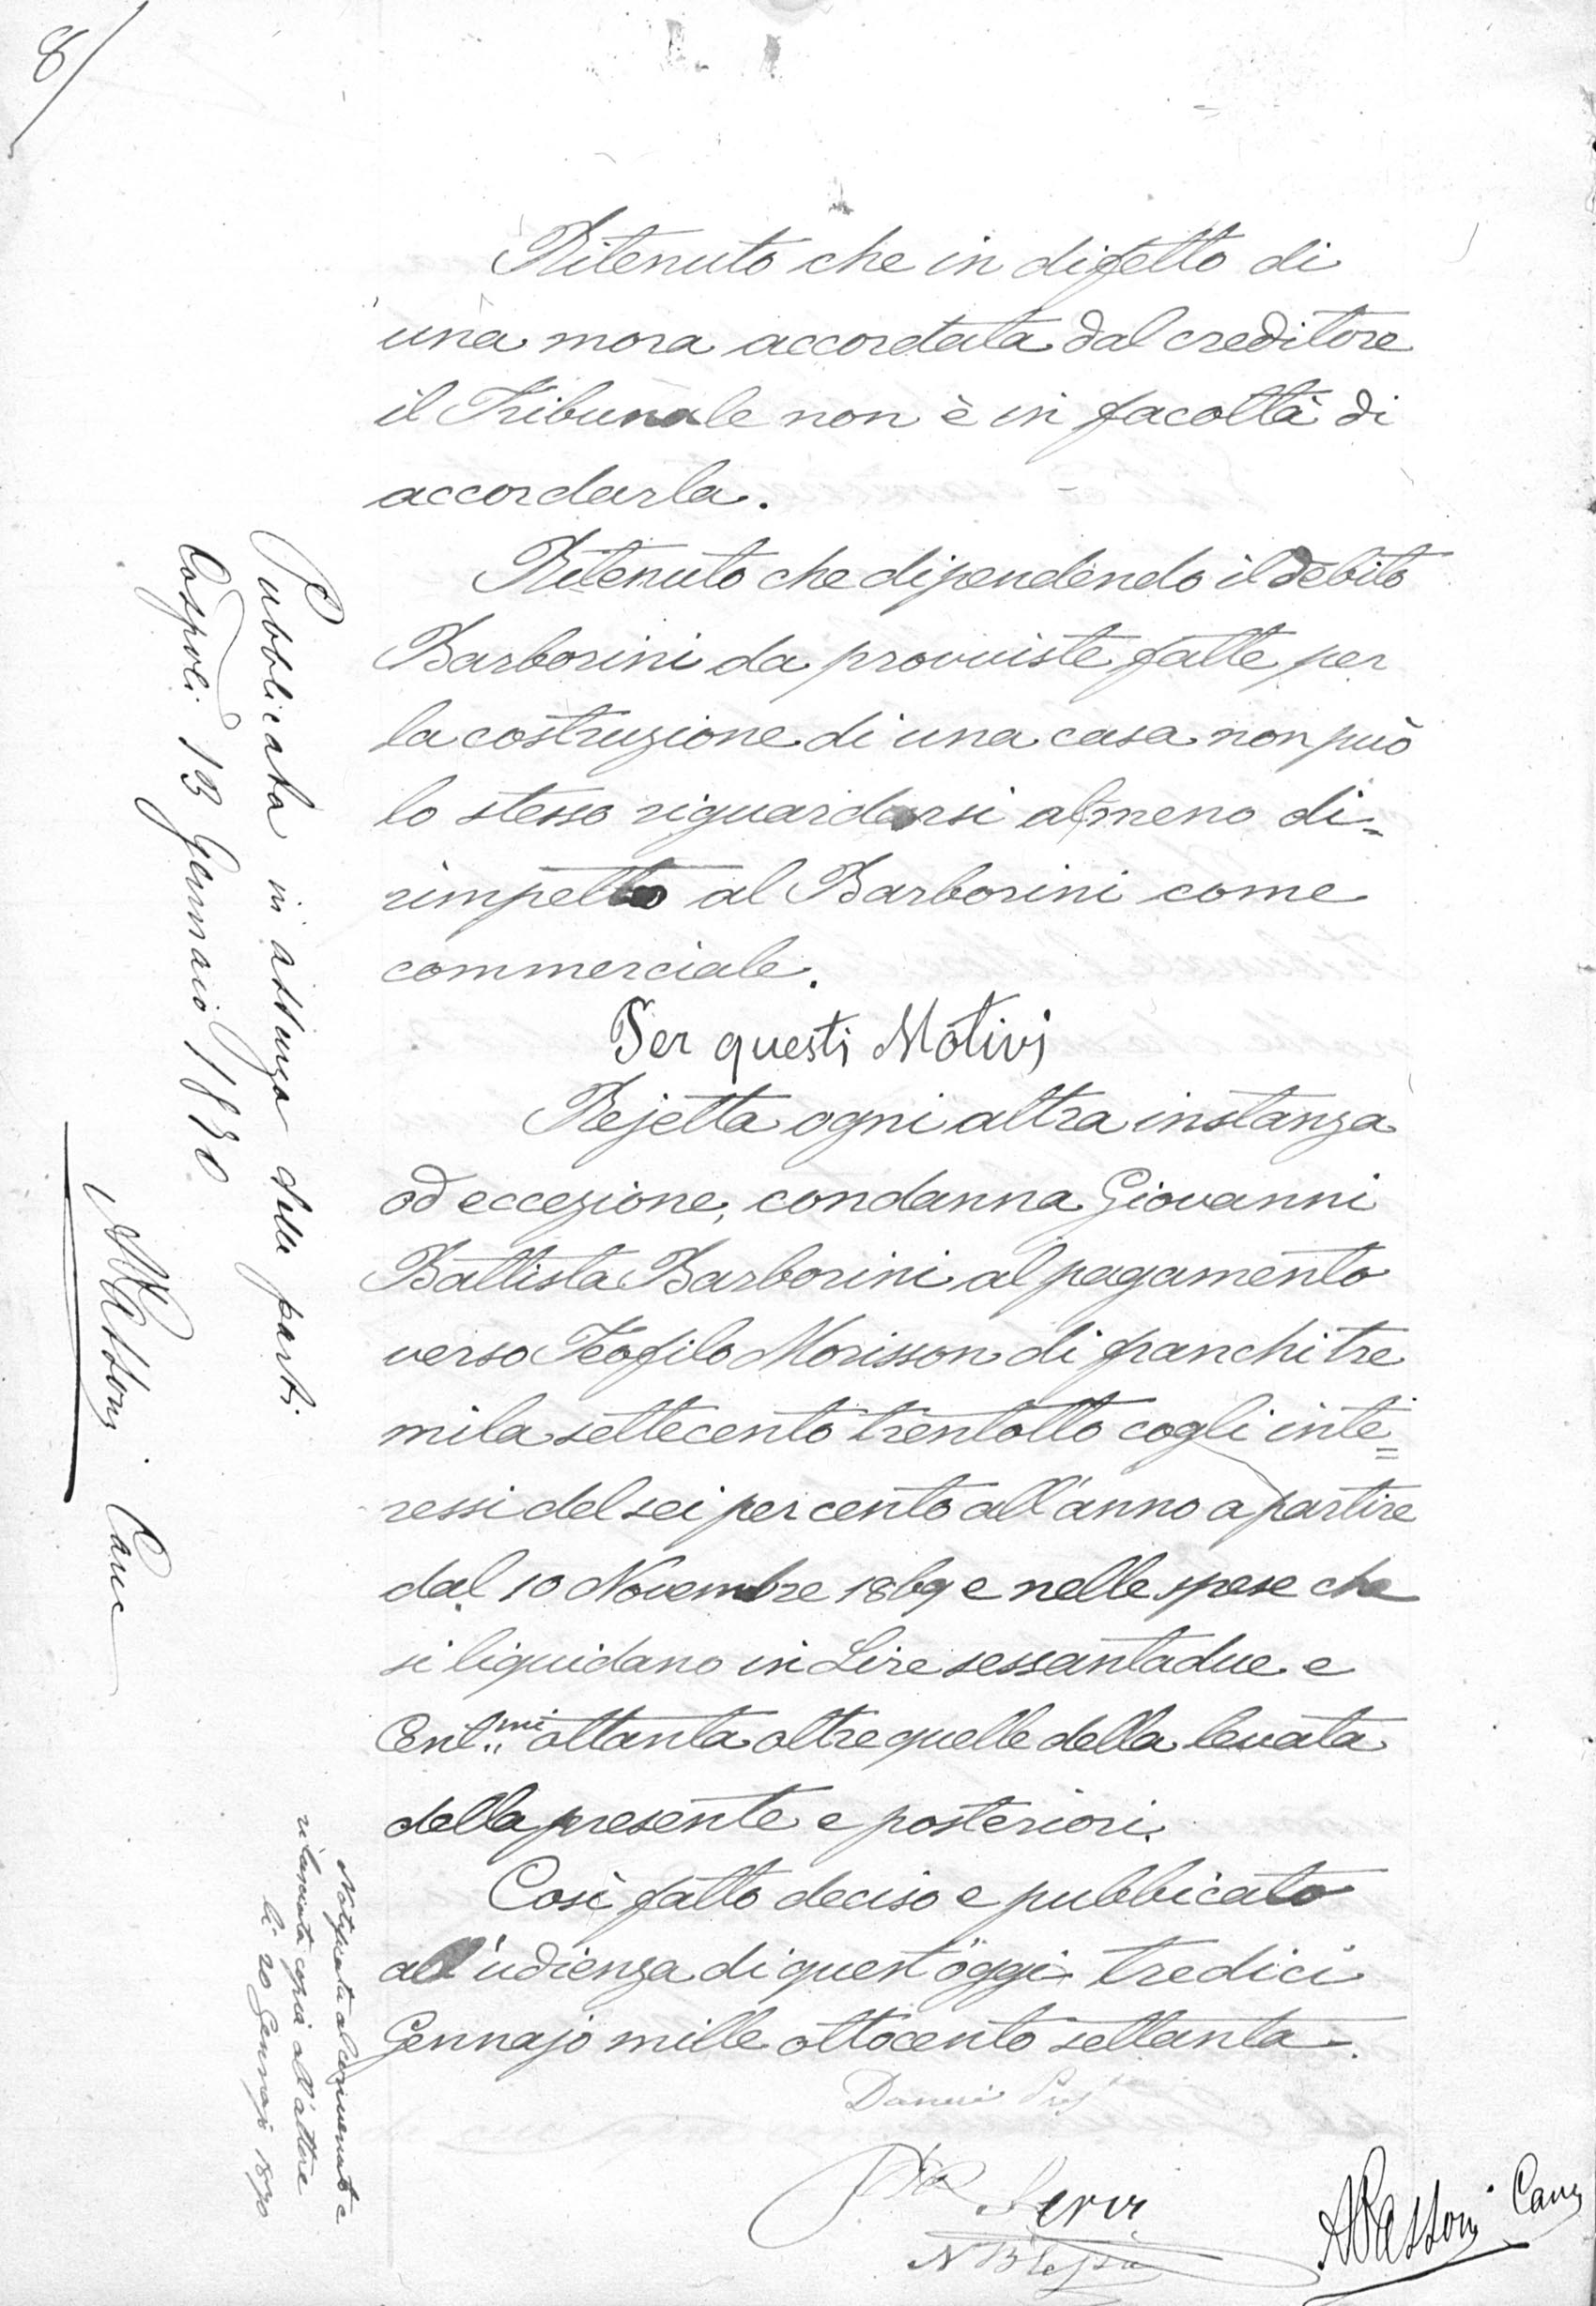 8/
Ritenuto che in difetto di
una mora accordata dal creditore
il Tribunale non è in facoltà di
accordarla.
Ritenuto che dipendendo il debito
Barborini da provviste fatte per
la costruzione di una casa non può
lo stesso riguardarsi almeno di=
rimpetto al Barborini come
commerciale.
Per questi Motivi
Rejetta ogni altra instanza
od eccezione, condanna Giovanni
Battista Barborini al pagamento
verso Teofilo Morisson di franchi tre
mila settecento trentotto cogli inte=
ressi del sei per cento all'anno a partire
dal 10 Novembre 1869 e nelle spese che
si liquidano in Lire sessantadue e
Cent.mi ottanta oltre quelle della levata
della presente e posteriori.
Così fatto deciso e pubblicato
all'udienza di quest'oggi tredici
Gennajo mille ottocento settanta.
Pubblicata in assenza delle parti
Cospoli 13 Gennaio 1870
Passoni Canc
Notificata al convenuto e
rilasciata copia all'attore
li 20 Gennajo 1870
Passoni Canc